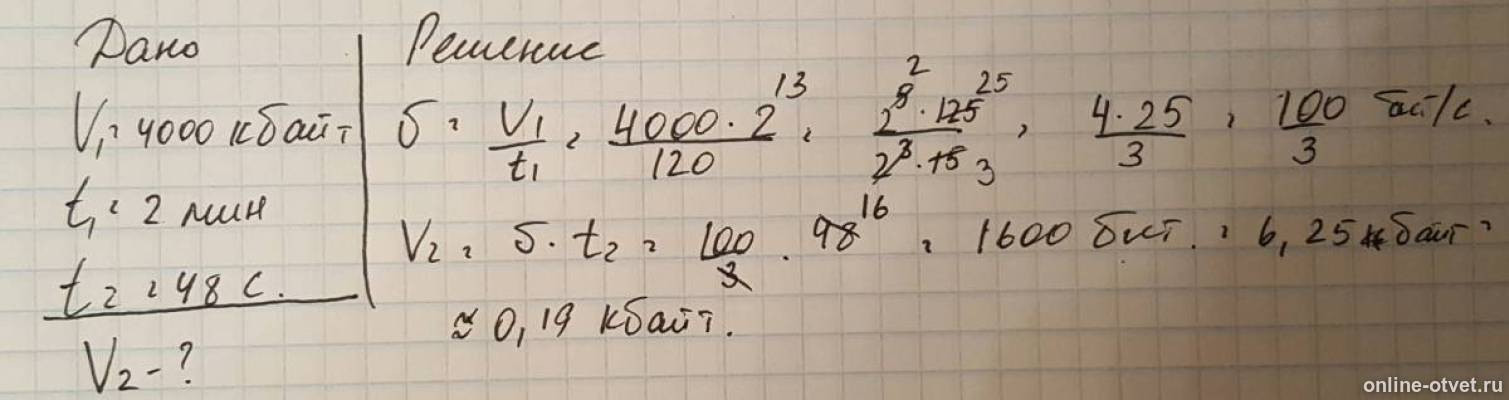 Дано
V₁ = 4000 кбайт
t₁ = 2 мин
t₂ = 48 с.
V₂ - ?
Решение
б = V₁/t₁ = 4000·2¹³/120 = 2⁸ 2·125 25/2³·15 3 = 4·25/3 = 100/3 бит/с.
V₂ = б·t₂ = 100/3 · 48 16 = 1600 бит. = 6,25 байт =
≈ 0,19 кбайт.
online-otvet.ru